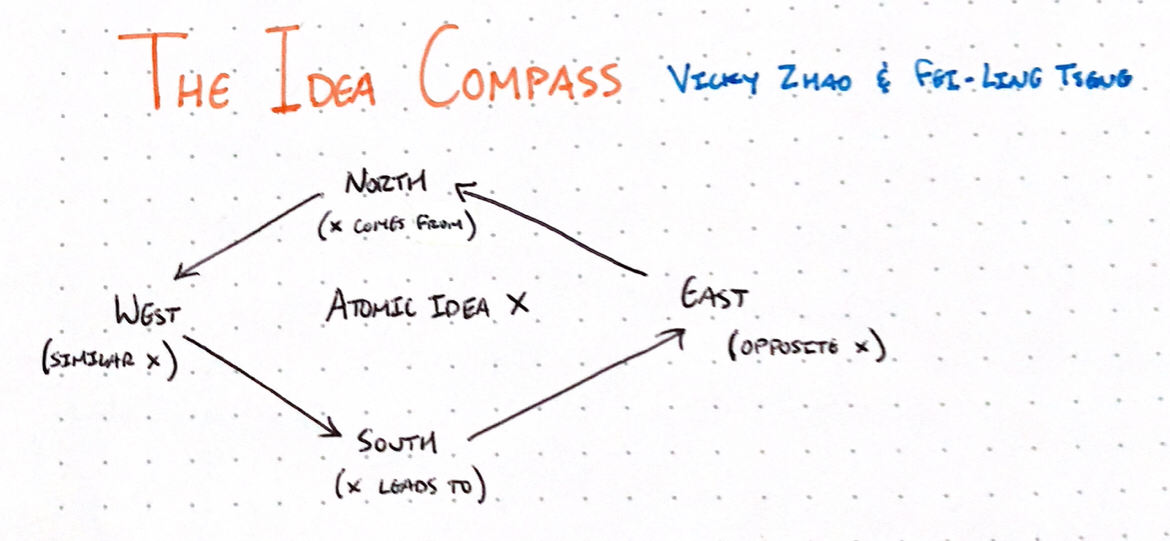 THE IDEA COMPASS VICKY ZHAO & FEI-LING TSENG
NORTH
(X COMES FROM)
WEST
(SIMILAR X)
ATOMIC IDEA X
EAST
(OPPOSITE X)
SOUTH
(X LEADS TO)